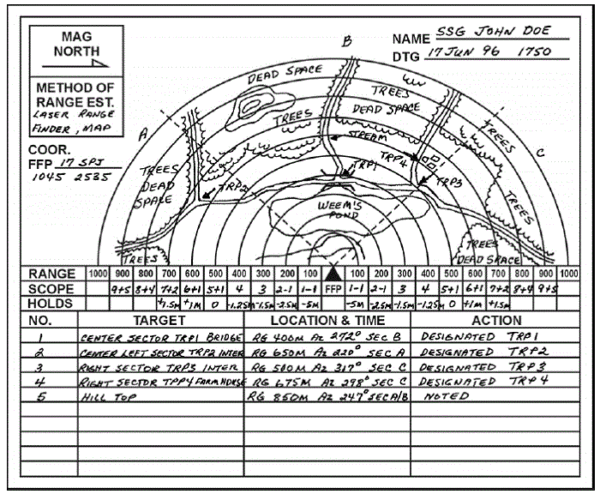 MAG
NORTH
NAME SSG JOHN DOE
DTG 17 JUN 96 1750
METHOD OF
RANGE EST.
LASER RANGE
FINDER, MAP
COOR.
FFP 17 SPJ
1045 2535
A
B
C
DEAD SPACE
TREES
DEAD SPACE
TREES
TREES
TREES
STREAM
TRP1
TRP4
TRP3
TRP2
TREES
DEAD
SPACE
WEEM'S
POND
TREES
TREES
DEAD SPACE
RANGE 1000 900 800 700 600 500 400 300 200 100 FFP 100 200 300 400 500 600 700 800 900 1000
SCOPE 9+5 8+4 7+2 6+1 5+1 4 3 2-1 1-1 1-1 2-1 3 4 5+1 6+1 7+2 8+4 9+5
HOLDS +1.5M +1M 0 -1.25M -1.5M -2.5M -5M -5M -2.5M -1.5M -1.25M 0 +1M +1.5M
NO. TARGET LOCATION & TIME ACTION
1 CENTER SECTOR TRP1 BRIDGE RG 400M AZ 272° SEC B DESIGNATED TRP1
2 CENTER LEFT SECTOR TRP2 INTER RG 650M AZ 220° SEC A DESIGNATED TRP2
3 RIGHT SECTOR TRP3 INTER RG 580M AZ 317° SEC C DESIGNATED TRP3
4 RIGHT SECTOR TRP4 FARM HOUSE RG 675M AZ 298° SEC C DESIGNATED TRP4
5 HILL TOP RG 850M AZ 247° SEC A/B NOTED